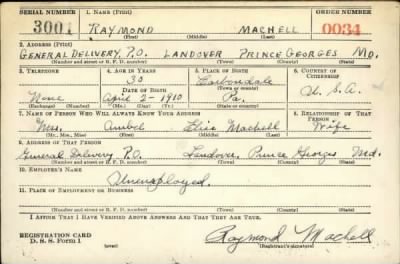 SERIAL NUMBER 1. NAME (Print) ORDER NUMBER
3001 RAYMOND MACHELL 0034
(First) (Middle) (Last)
2. ADDRESS (Print)
GENERAL DELIVERY, P.O. LANDOVER PRINCE GEORGES MD.
(Number and street or R. F. D. number) (Town) (County) (State)
3. TELEPHONE 4. AGE IN YEARS 5. PLACE OF BIRTH 6. COUNTRY OF CITIZENSHIP
30 Carbondale
DATE OF BIRTH (Town or county)
None April 2-1910 Pa. U.S.A.
(Exchange) (Number) (Mo.) (Day) (Yr.) (State or country)
7. NAME OF PERSON WHO WILL ALWAYS KNOW YOUR ADDRESS 8. RELATIONSHIP OF THAT PERSON
Mrs. Machell Wife
(Mr., Mrs., Miss) (First) (Middle) (Last)
9. ADDRESS OF THAT PERSON
General Delivery P.O. Landover, Prince Georges Md.
(Number and street or R. F. D. number) (Town) (County) (State)
10. EMPLOYER'S NAME
Unemployed.
11. PLACE OF EMPLOYMENT OR BUSINESS
(Number and street or R. F. D. number) (Town) (County) (State)
I AFFIRM THAT I HAVE VERIFIED ABOVE ANSWERS AND THAT THEY ARE TRUE.
REGISTRATION CARD
D. S. S. Form 1 (over) Raymond Machell
(Registrant's signature)